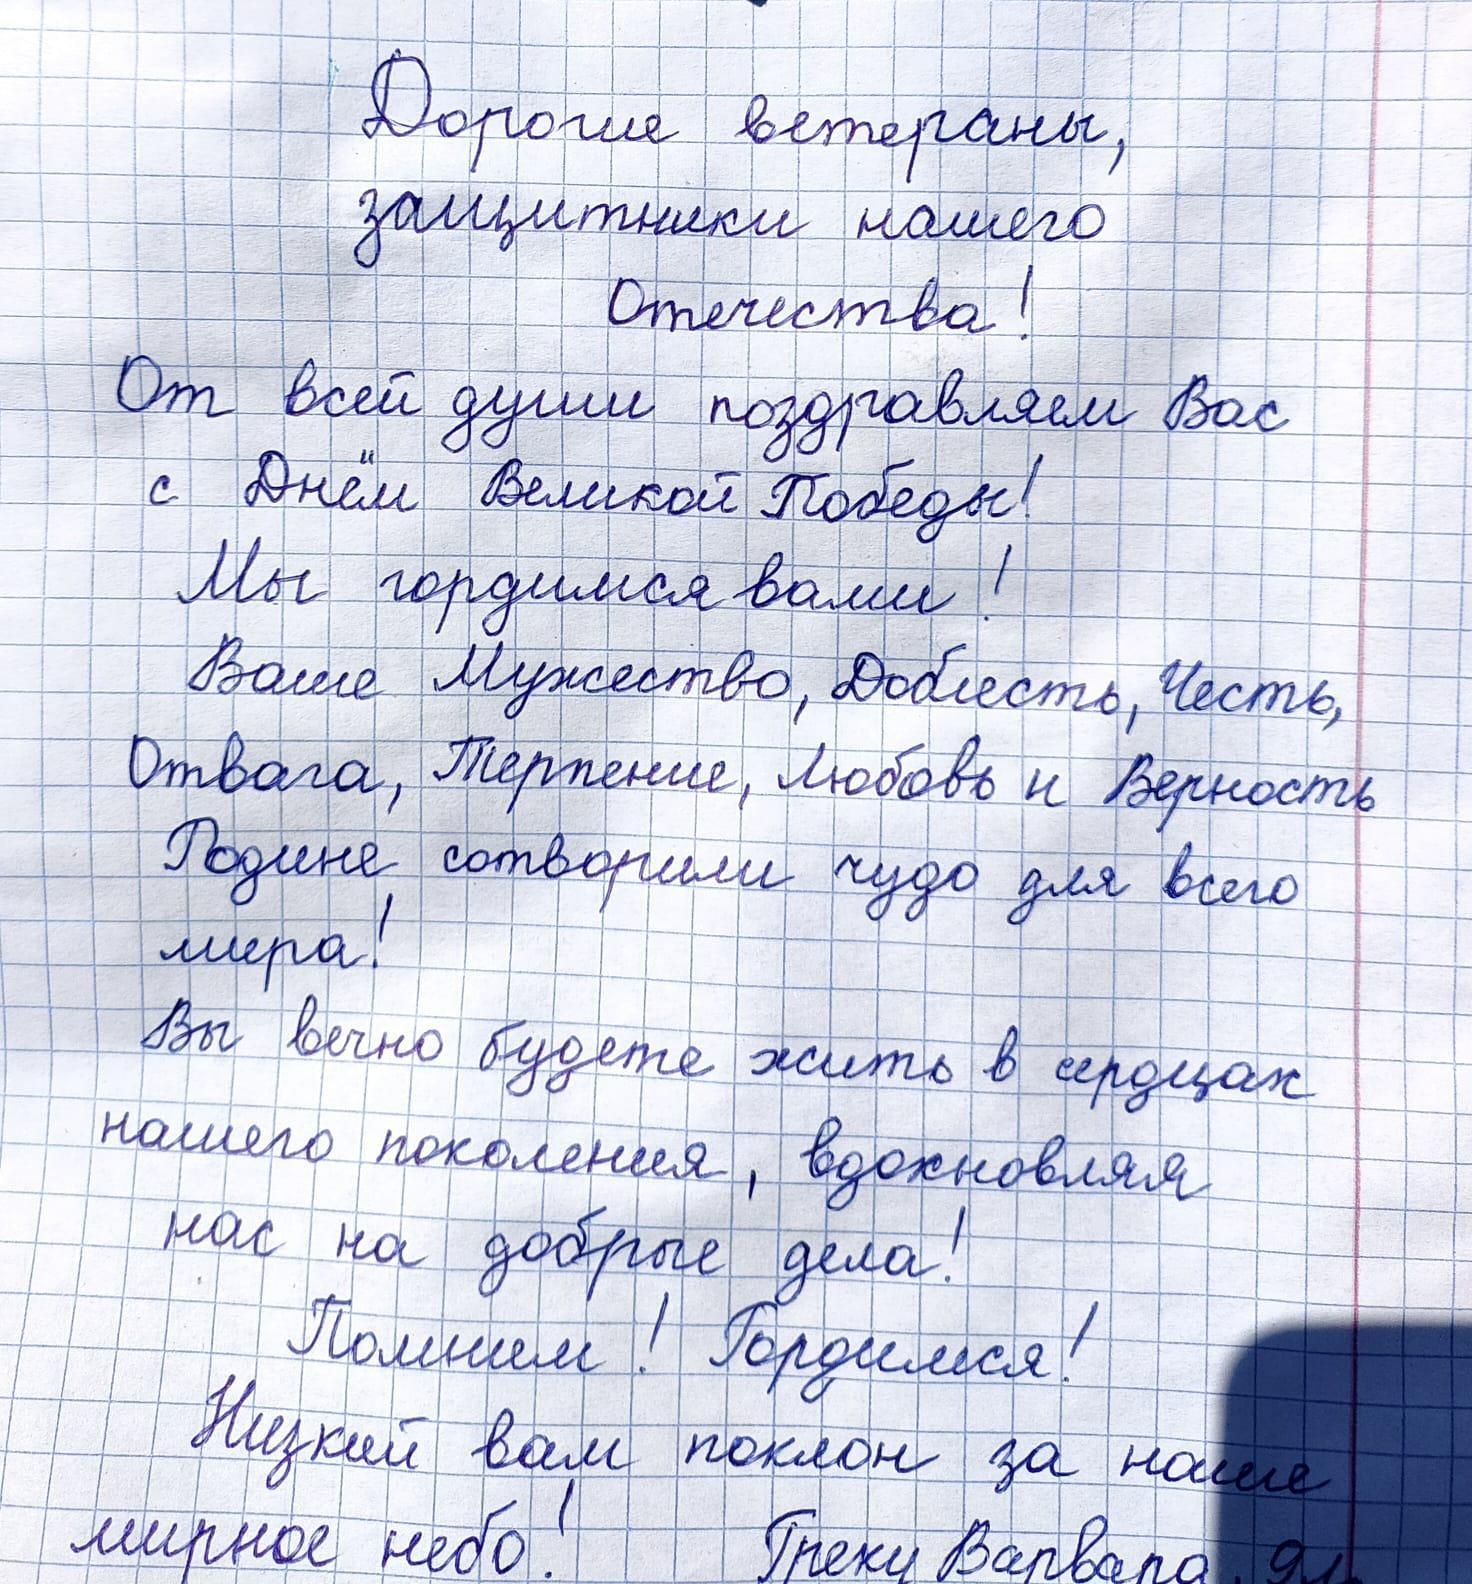 Дорогие ветераны,
защитники нашего
Отечества!
От всей души поздравляем Вас
с Днём Великой Победы!
Мы гордимся вами!
Ваше Мужество, Доблесть, Честь,
Отвага, Терпение, Любовь и Верность
Родине сотворили чудо для всего
мира!
Вы вечно будете жить в сердцах
нашего поколения, вдохновляя
нас на добрые дела!
Помним! Гордимся!
Низкий вам поклон за наше
мирное небо! Греку Варвара, 9л.